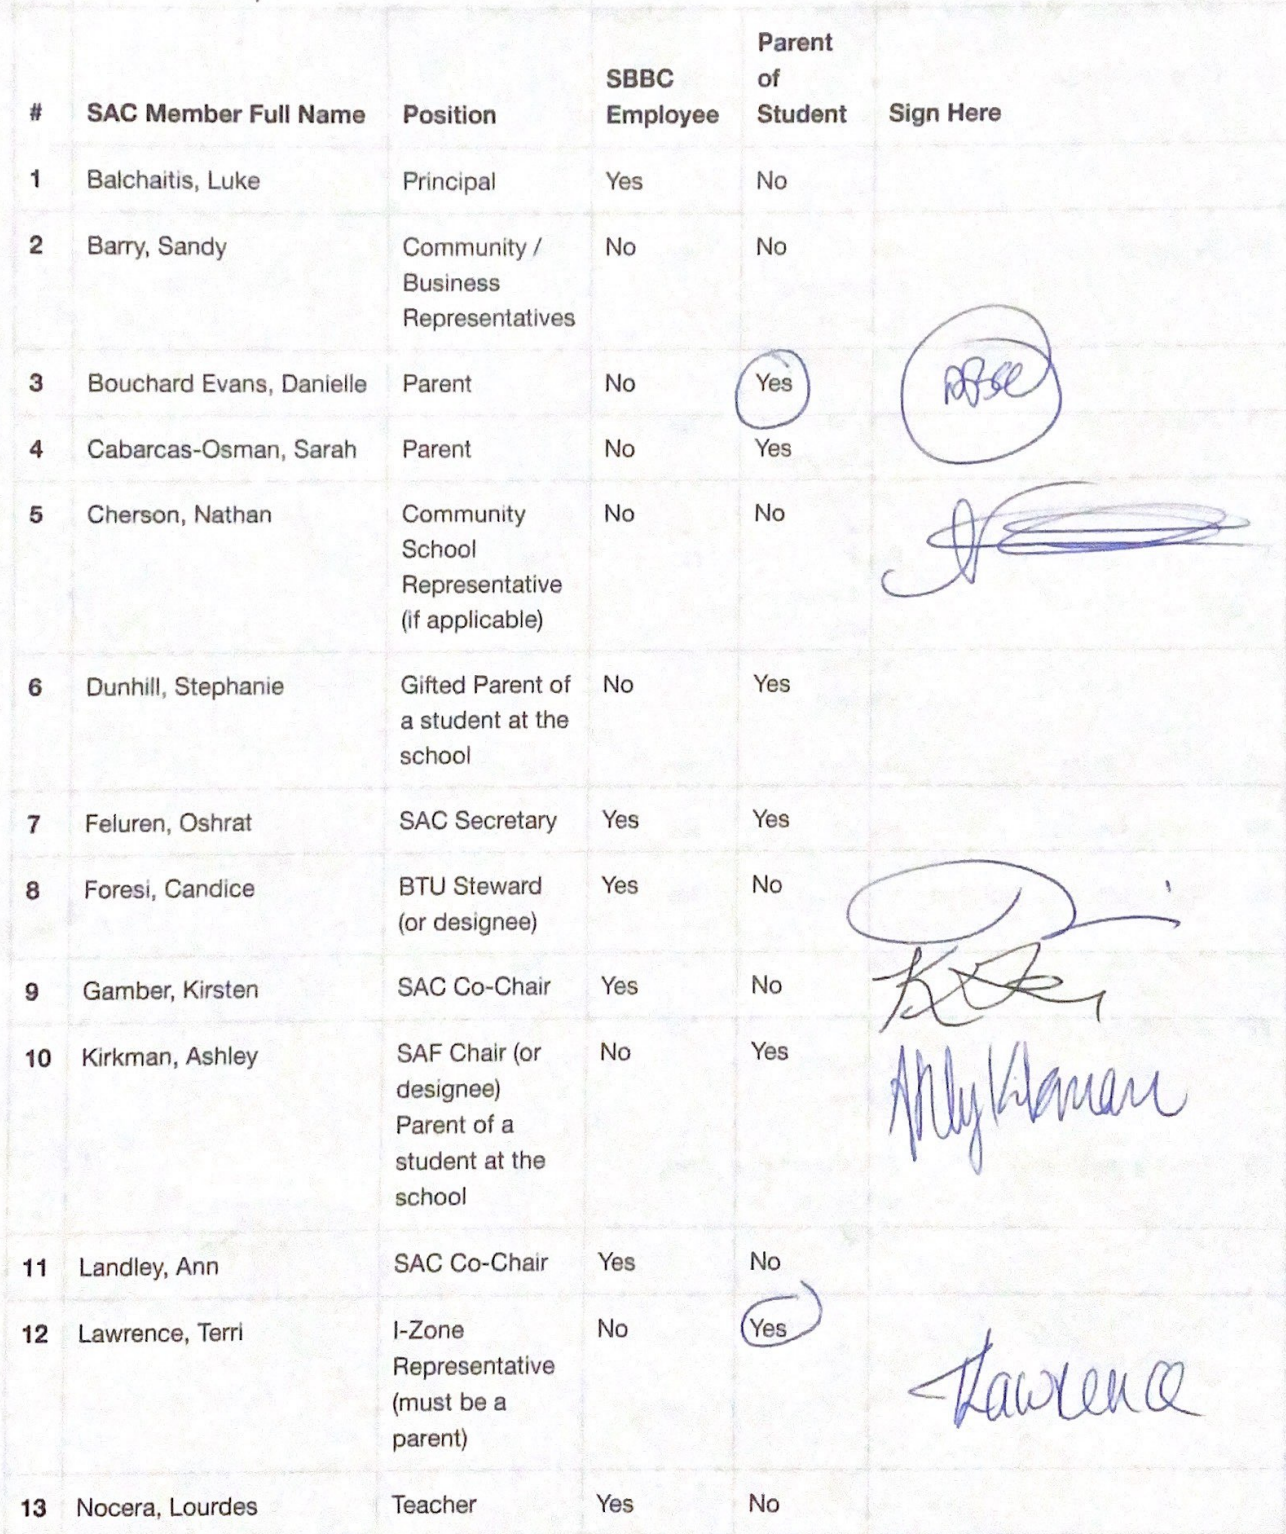 Parent
SBBC of
# SAC Member Full Name Position Employee Student Sign Here
1 Balchaitis, Luke Principal Yes No
2 Barry, Sandy Community / No No
Business
Representatives
3 Bouchard Evans, Danielle Parent No Yes
4 Cabarcas-Osman, Sarah Parent No Yes
5 Cherson, Nathan Community No No
School
Representative
(if applicable)
6 Dunhill, Stephanie Gifted Parent of No Yes
a student at the
school
7 Feluren, Oshrat SAC Secretary Yes Yes
8 Foresi, Candice BTU Steward Yes No
(or designee)
9 Gamber, Kirsten SAC Co-Chair Yes No
10 Kirkman, Ashley SAF Chair (or No Yes
designee)
Parent of a
student at the
school
11 Landley, Ann SAC Co-Chair Yes No
12 Lawrence, Terri I-Zone No Yes
Representative
(must be a
parent)
TLawrence
13 Nocera, Lourdes Teacher Yes No